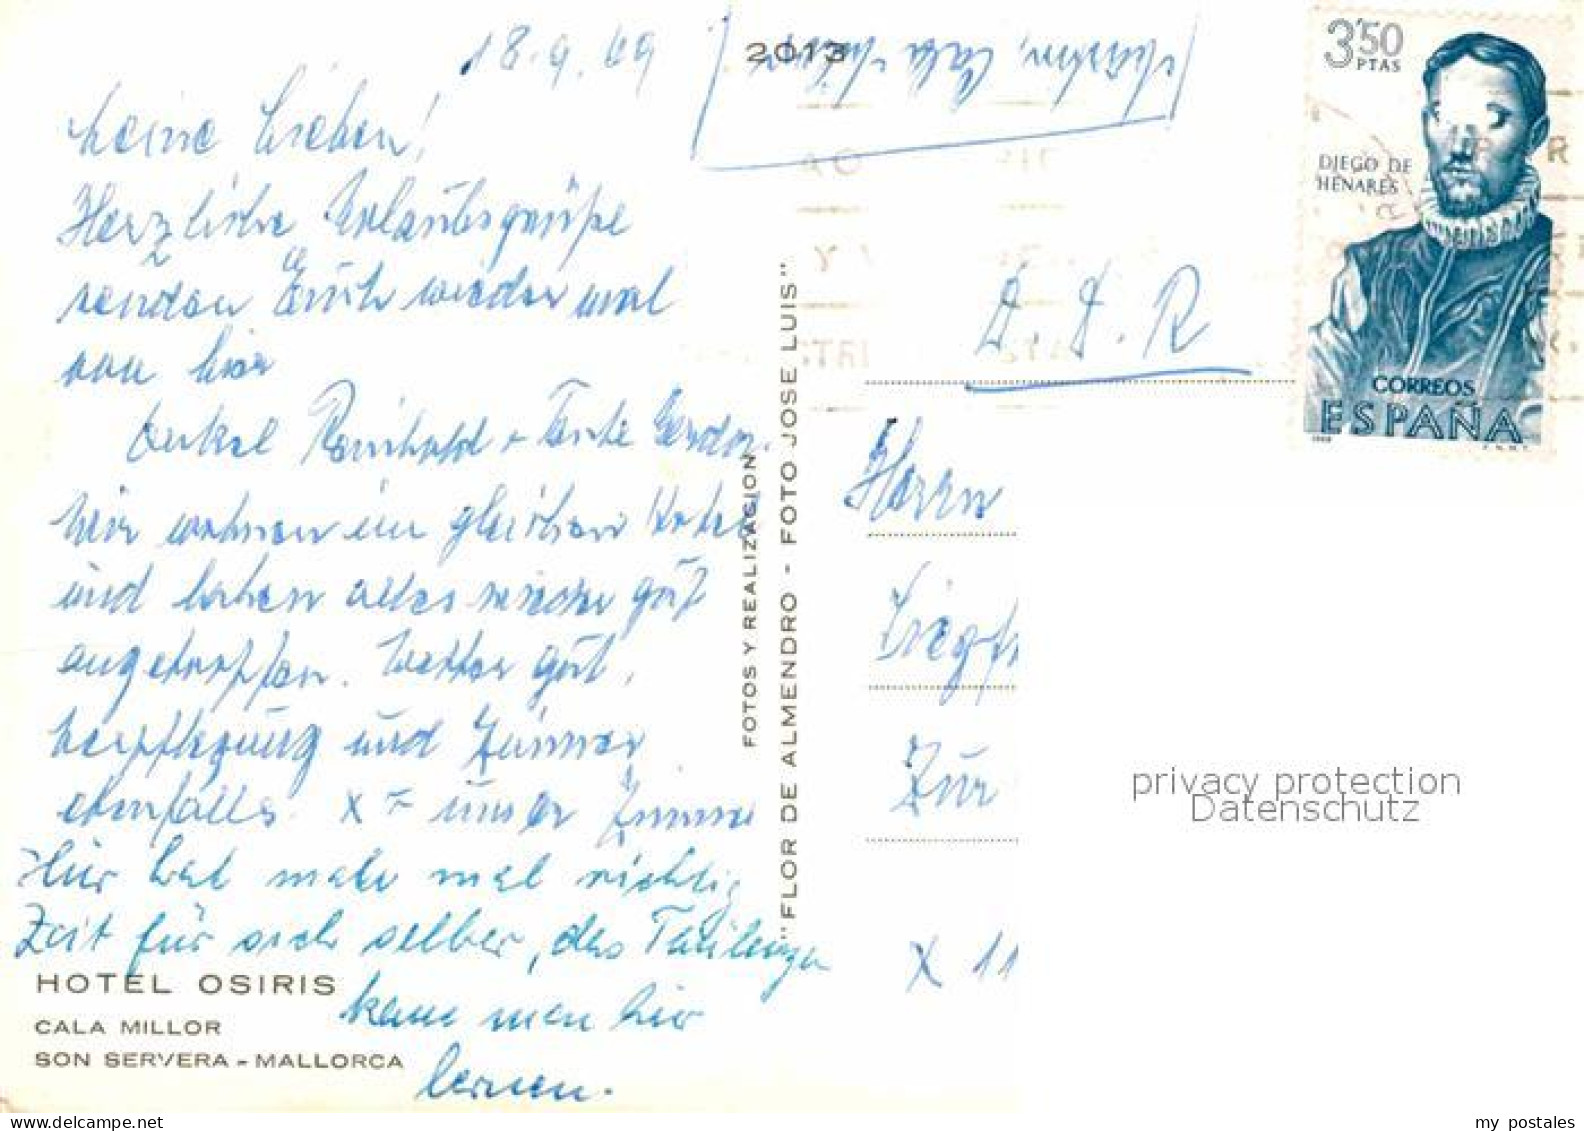 18.9.69
2013
Meine Lieben!
Herzliche Urlaubsgrüße
senden Euch wieder mal
von hier
Onkel Reinhold + Tante
Wir wohnen im gleichen Hotel
und haben alles wieder gut
angetroffen. Wetter gut,
Verpflegung und Zimmer
ebenfalls. X = unser Zimmer
Hier hat man mal richtig
Zeit für sich selber, das
kann man hier
lernen.
HOTEL OSIRIS
CALA MILLOR
SON SERVERA - MALLORCA
FOTOS Y REALIZACION
"FLOR DE ALMENDRO - FOTO JOSE LUIS"
3'50
PTAS
DIEGO DE
HENARES
CORREOS
ESPAÑA
D. D. R
Herrn
Zur
X 11
privacy protection
Datenschutz
www.delcampe.net
my postales